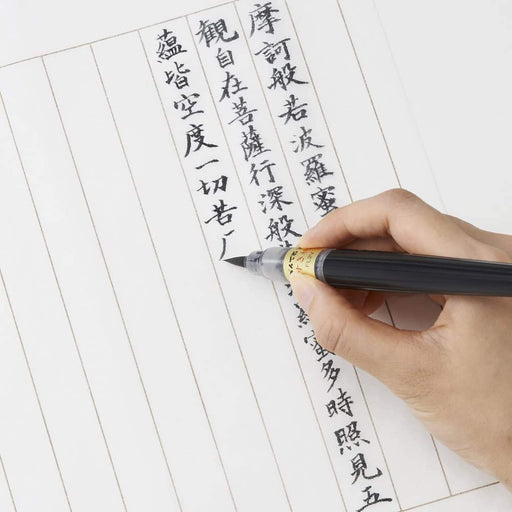 摩訶般若波羅蜜
観自在菩薩行深般
蜜多時照見五
蘊皆空度一切苦